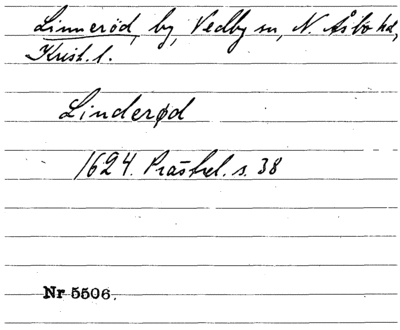 Linneröd, by, Vedby sn, N. Åsbo hd,
Krist. l.
Linderød
1624. Prästrel. s. 38
Nr 5506.